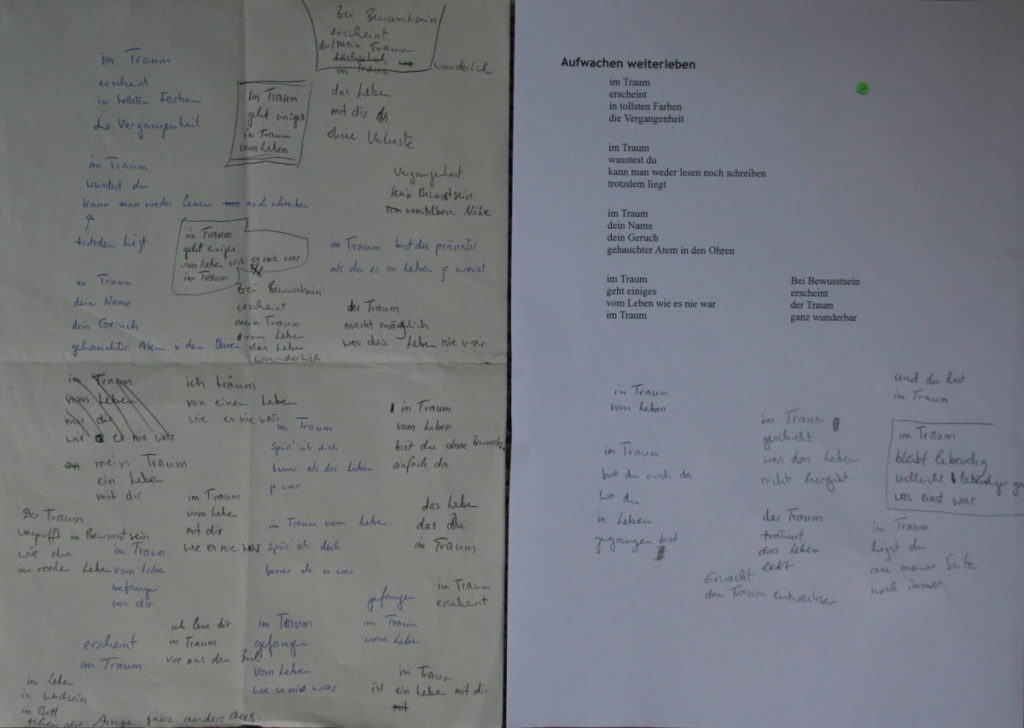 Bei Bewusstsein
erscheint
der/mein Traum
wunderlich
im Traum
das Leben
mit dir
ohne Verluste
im Traum
erscheint
in tollsten Farben
die Vergangenheit
im Traum
geht einiges
im Traum
vom Leben
im Traum
wusstest du
kann man weder lesen noch schreiben
trotzdem liegt
Vergangenheit
kein Bewusstsein
unmittelbare Nähe
im Traum
geht einiges
vom Leben wie es nie war
im Traum
im Traum bist du präsenter
als du es im Leben je warst
im Traum
dein Name
dein Geruch
gehauchter Atem in den Ohren
Bei Bewusstsein
erscheint
mein Traum
vom Leben
das Leben
wunderlich
der Traum
macht möglich
was das Leben nie war
im Traum
vom Leben
mit dir
wie es nie war
ich träum
von einem Leben
wie es nie war
im Traum
spür' ich dich
besser als das Leben
je war
im Traum
vom Leben
bist du ohne Bewusstsein
einfach da
mein Traum
ein Leben
mit dir
im Traum
vom Leben
mit dir
wie es nie war
im Traum vom Leben
spür ich dich
besser als es war
das Leben
das
im Traum
Der Traum
verpufft im Bewusstsein
wie du
im realen Leben
im Traum
vom Leben
befangen
von dir
im Traum
erscheint
gefangen
im Traum
vom Leben
erscheint
im Traum
ich lese dir
im Traum
vor aus dem Buch
im Traum
gefangen
vom Leben
wie es nie war
im Traum
ist ein Leben mit dir
im Leben
im Wachsein
im Bett
sehen die Dinge ganz anders aus.
Aufwachen weiterleben
im Traum
erscheint
in tollsten Farben
die Vergangenheit
im Traum
wusstest du
kann man weder lesen noch schreiben
trotzdem liegt
im Traum
dein Name
dein Geruch
gehauchter Atem in den Ohren
im Traum
geht einiges
vom Leben wie es nie war
im Traum
Bei Bewusstsein
erscheint
der Traum
ganz wunderbar
im Traum
vom Leben
und du bist
im Traum
im Traum
geschieht
was das Leben
nicht hergibt
im Traum
bleibt lebendig
vielleicht lebendiger
was einst war
im Traum
bist du noch da
wo du
im Leben
gegangen bist
der Traum
träumt
das Leben
lebt
im Traum
liegst du
an meiner Seite
noch immer
Erwacht
dem Traum entwachsen